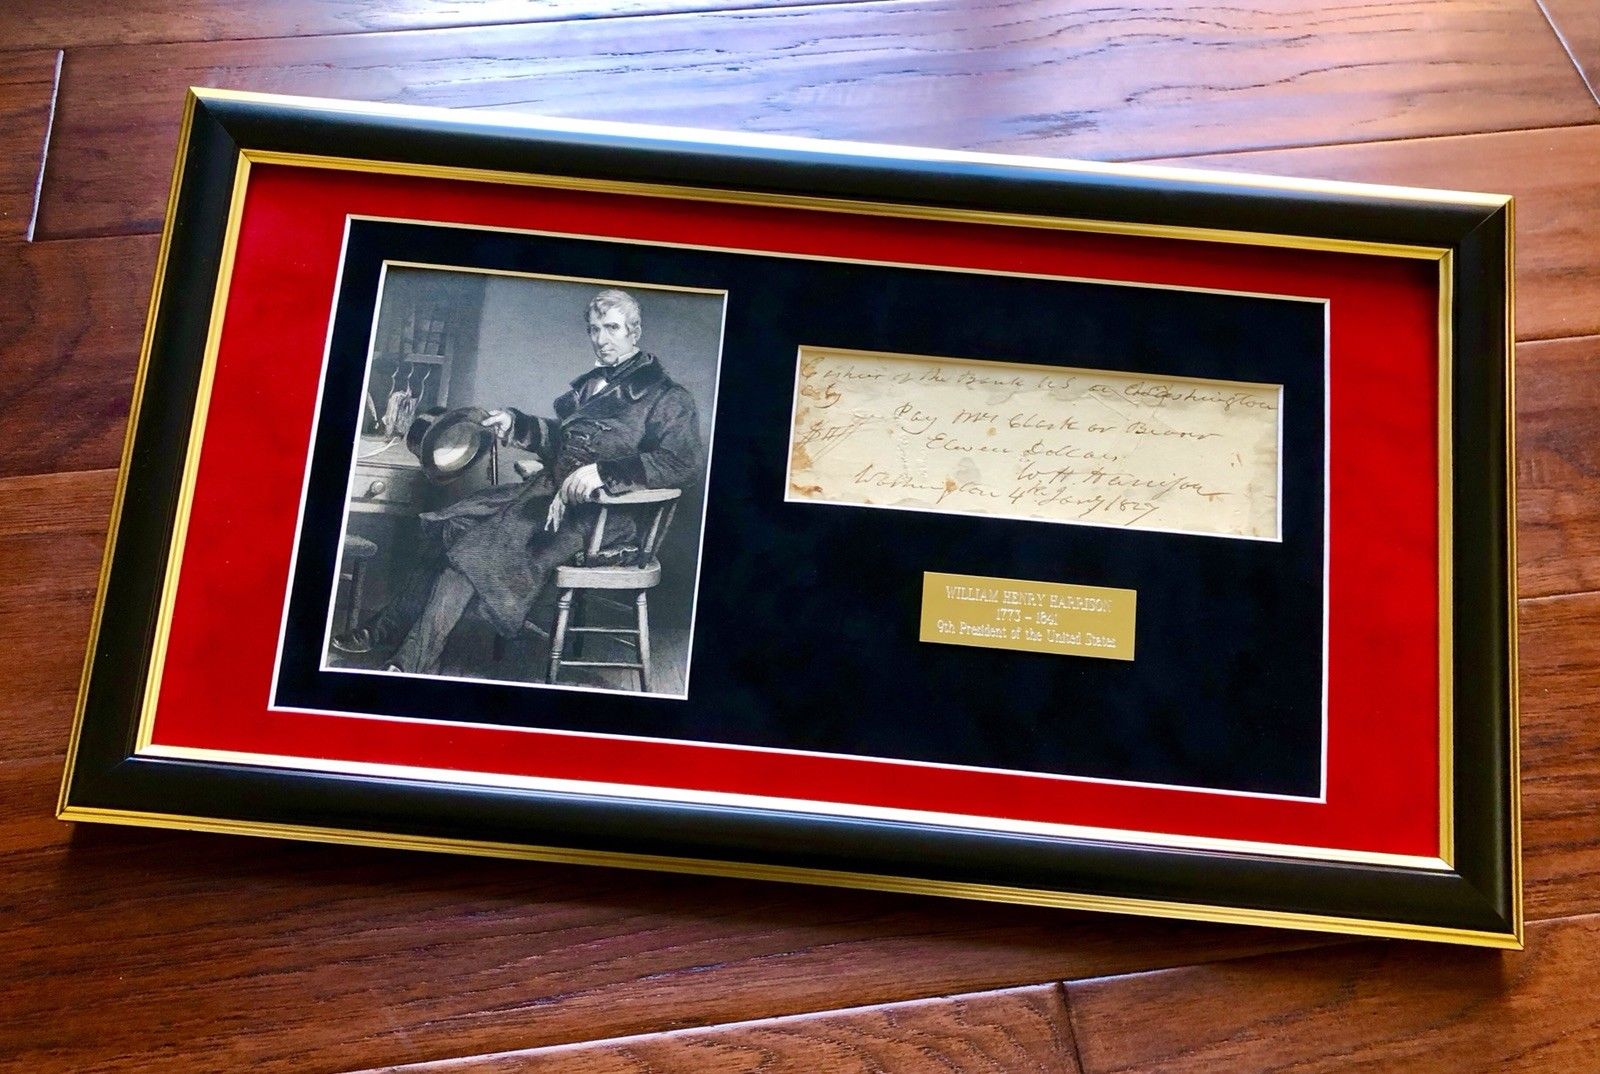 Cashier of the Bank U S at Washington
City Pay Mr Clark or Bearer
$11//
Eleven Dollars
W. H. Harrison
Washington 4th Jany 1827
WILLIAM HENRY HARRISON
1773 – 1841
9th President of the United States